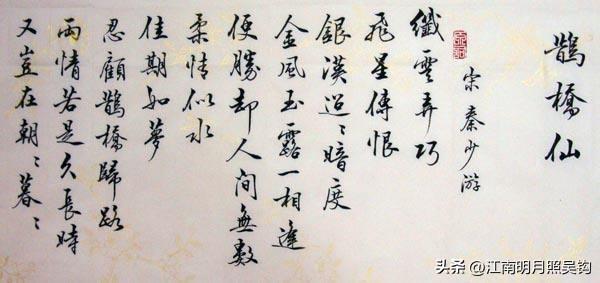 鵲橋仙
宋 秦少游
纖雲弄巧
飛星傳恨
銀漢迢〻暗度
金風玉露一相逢
便勝却人间無數
柔情似水
佳期如夢
忍顧鵲橋歸路
兩情若是久長時
又豈在朝〻暮〻
头条 @江南明月照吴钩